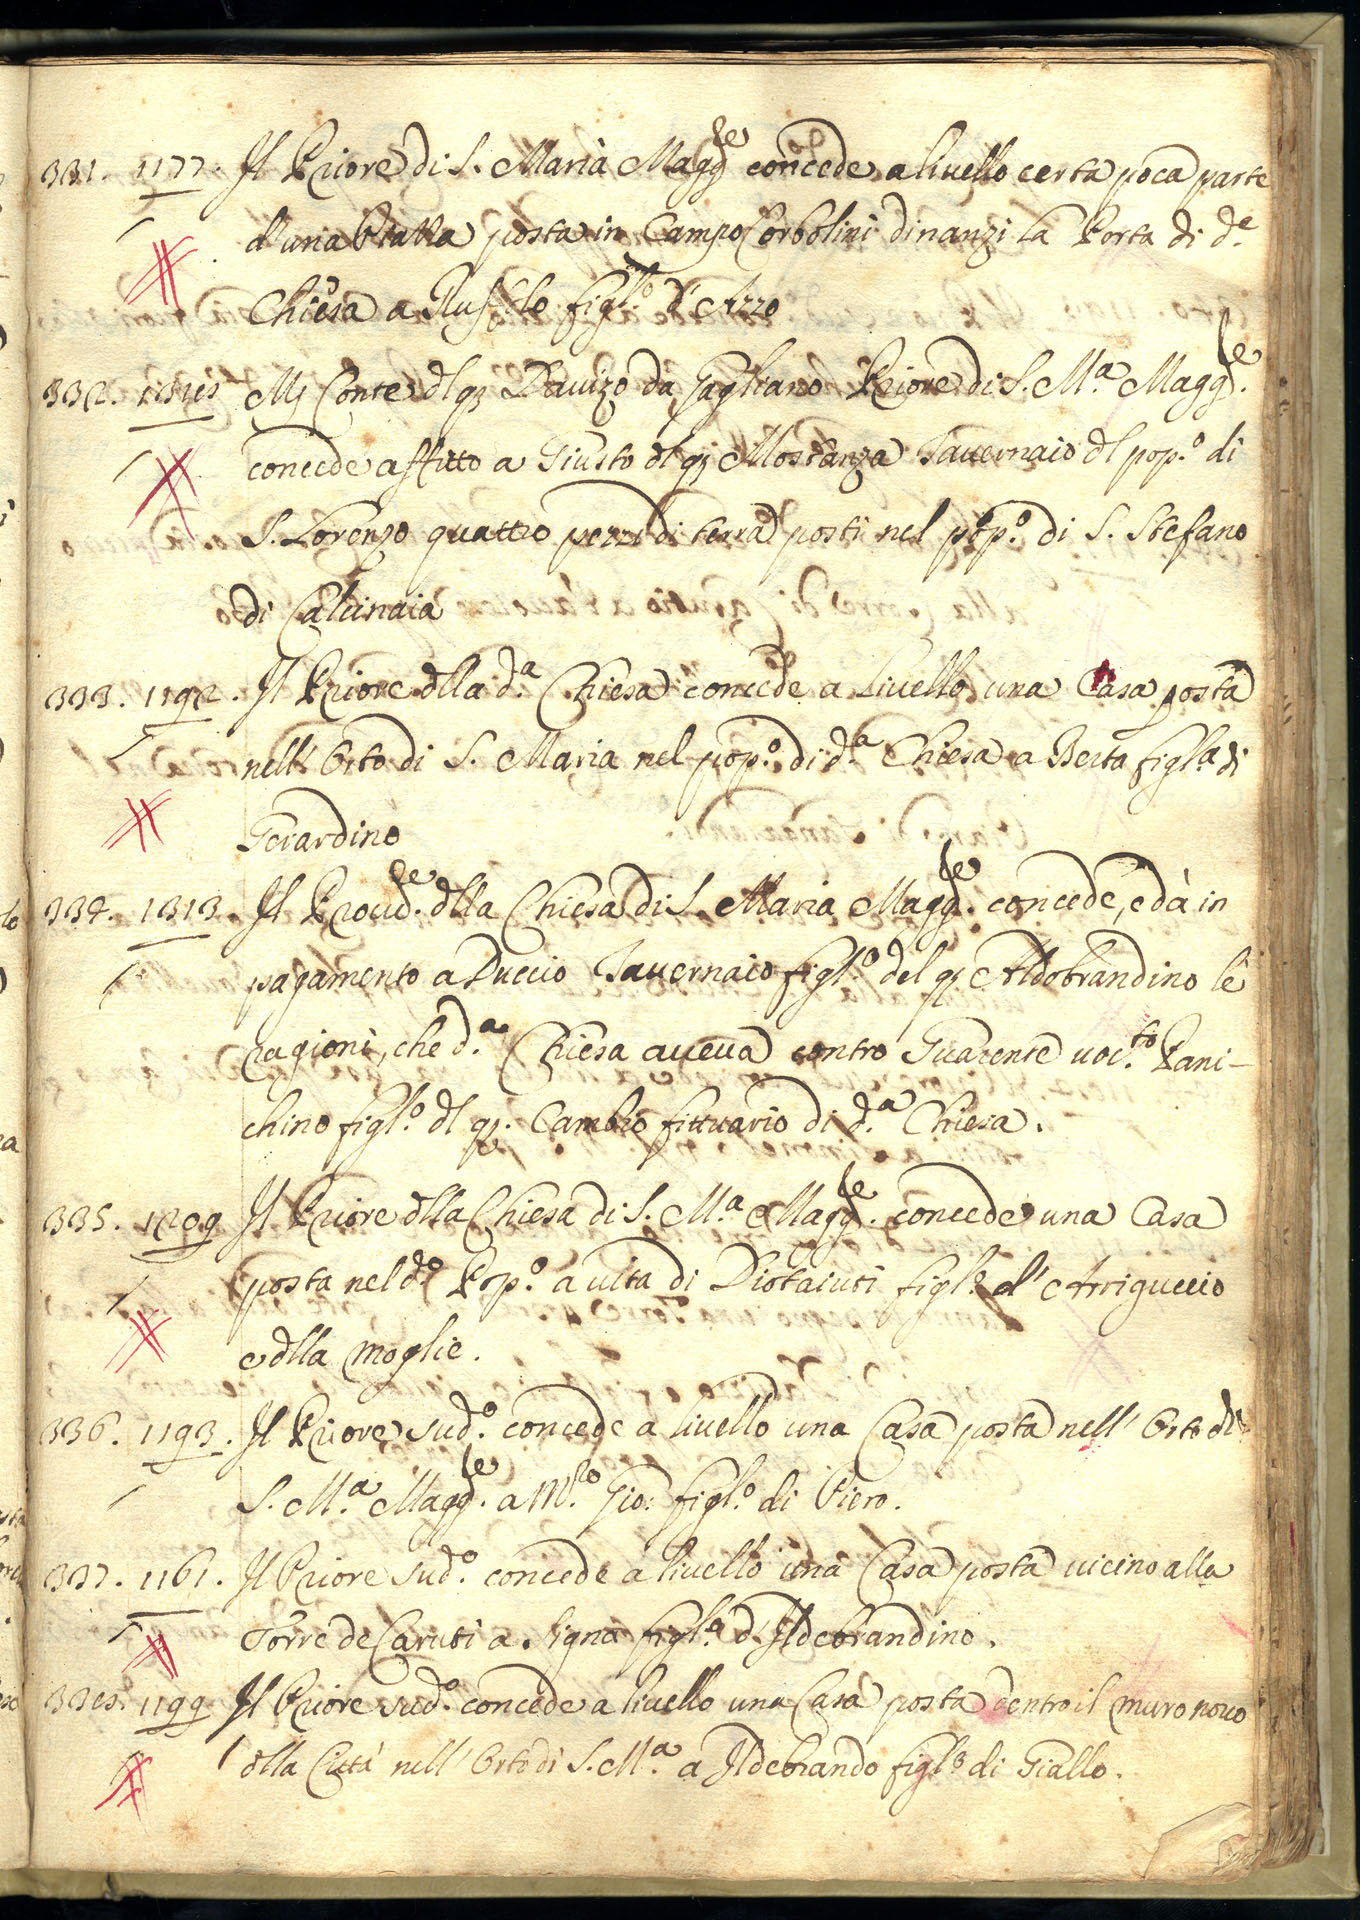 331. 1177. Il Priore di S. Maria Magg.re concede a livello certa poca parte
d'una Piazza posta in Campo Corbolini dinanzi la Porta di d.a
Chiesa a figl.o d'Azzo
332. 1318 Conte dl q. da Gagliano Priore di S. M.a Magg.re
concede affitto a Giusto dl q. Mostanza Tavernaio dl pop.o di
S. Lorenzo quattro pezzi di terra posti nel pop.o di S. Stefano
di Calcinaia
333. 1192. Il Priore dlla d.a Chiesa concede a livello una Casa posta
nell'Orto di S. Maria nel pop.o di d.a Chiesa a Berta figl.a di
Gerardino
334. 1313. Il Proved.re dlla Chiesa di S. Maria Magg.re concede, e dà in
pagamento a Duccio Tavernaio figl.o del q. Aldobrandino le
ragioni, che d.a Chiesa aveva contro Guarente voc.to Pani-
chino figl.o dl q. Cambio fittuario di d.a Chiesa.
335. 1209 Il Priore dlla Chiesa di S. M.a Magg.re concede una Casa
posta nel d.o Pop.o a vita di Diotaiuti figl.o d'Arriguccio
e dlla moglie.
336. 1193. Il Priore sud.o concede a livello una Casa posta nell'Orto di
S. M.a Magg.re a M.o Gio: figl.o di Piero.
337. 1161. Il Priore sud.o concede a livello una Casa posta vicino alla
Torre de Caruti a Signa figl.a d'Ildebrandino.
338. 1199 Il Priore sud.o concede a livello una Casa posta dentro il muro novo
dlla Città nell'Orto di S. M.a a Ildebrando figl.o di Giallo.